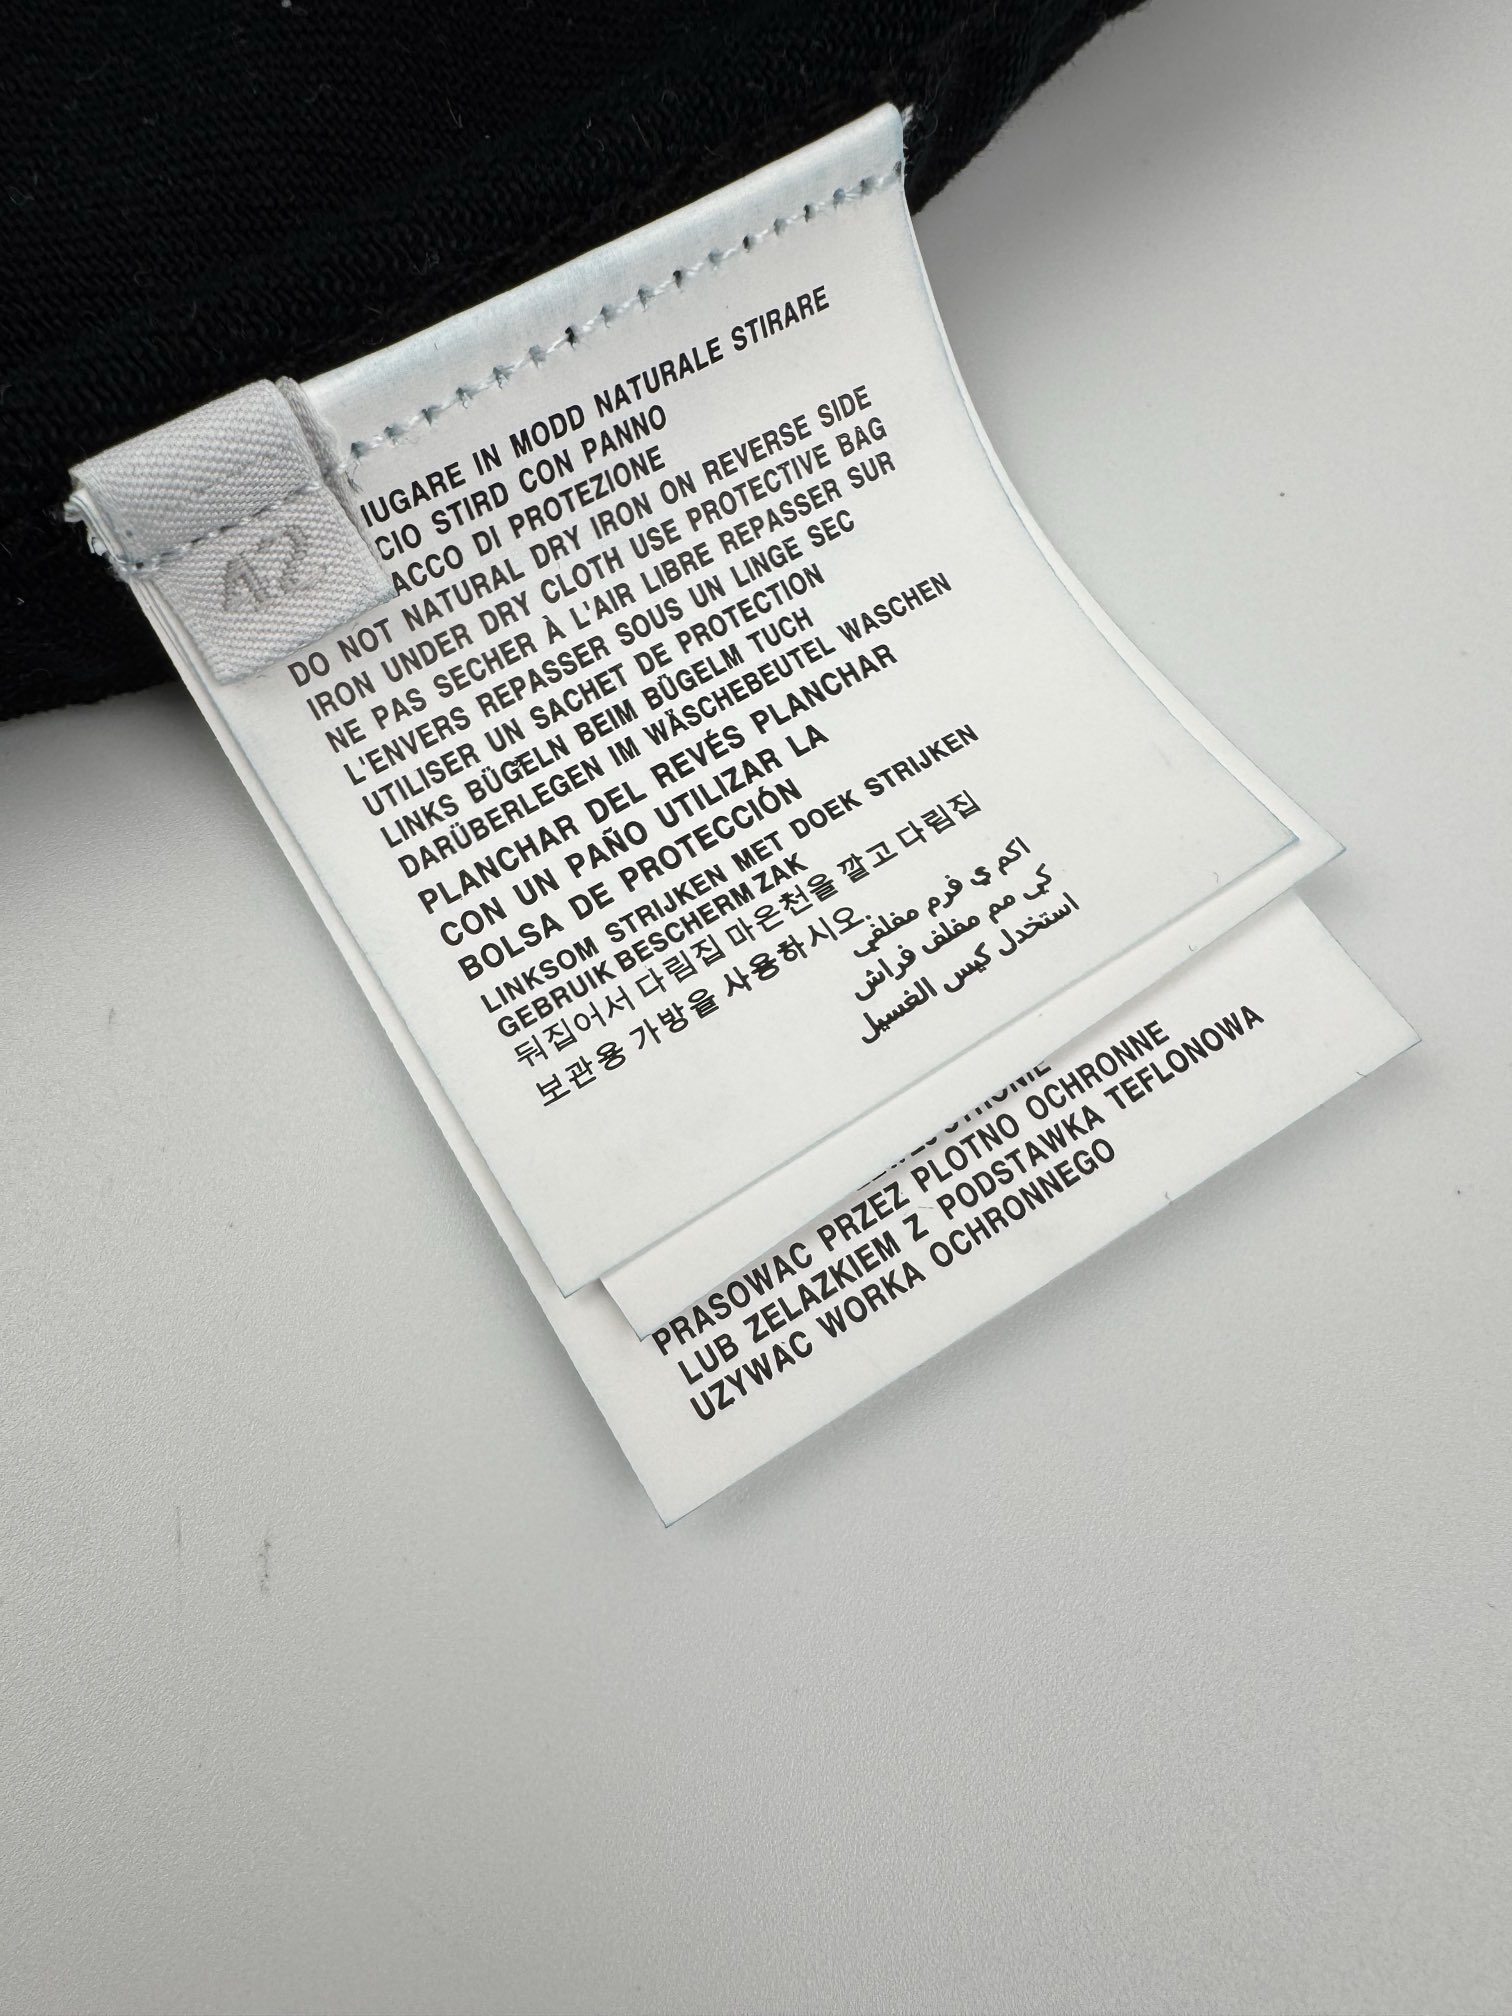 42
IUGARE IN MODD NATURALE STIRARE
CIO STIRD CON PANNO
ACCO DI PROTEZIONE
DO NOT NATURAL DRY IRON ON REVERSE SIDE
IRON UNDER DRY CLOTH USE PROTECTIVE BAG
NE PAS SECHER À L'AIR LIBRE REPASSER SUR
L'ENVERS REPASSER SOUS UN LINGE SEC
UTILISER UN SACHET DE PROTECTION
LINKS BÜGELN BEIM BÜGELM TUCH
DARÜBERLEGEN IM WÄSCHEBEUTEL WASCHEN
PLANCHAR DEL REVÉS PLANCHAR
CON UN PAÑO UTILIZAR LA
BOLSA DE PROTECCIÓN
LINKSOM STRIJKEN MET DOEK STRIJKEN
GEBRUIK BESCHERM ZAK
뒤집어서 다림질 마은천을 깔고 다림집
보관용 가방을 사용하시오.
اكم ي فرم مقلفي
كي مم مقلف فراش
استخدل كيس الغسيل
PRASOWAC PRZEZ PLOTNO OCHRONNE
LUB ZELAZKIEM Z PODSTAWKA TEFLONOWA
UZYWAC WORKA OCHRONNEGO